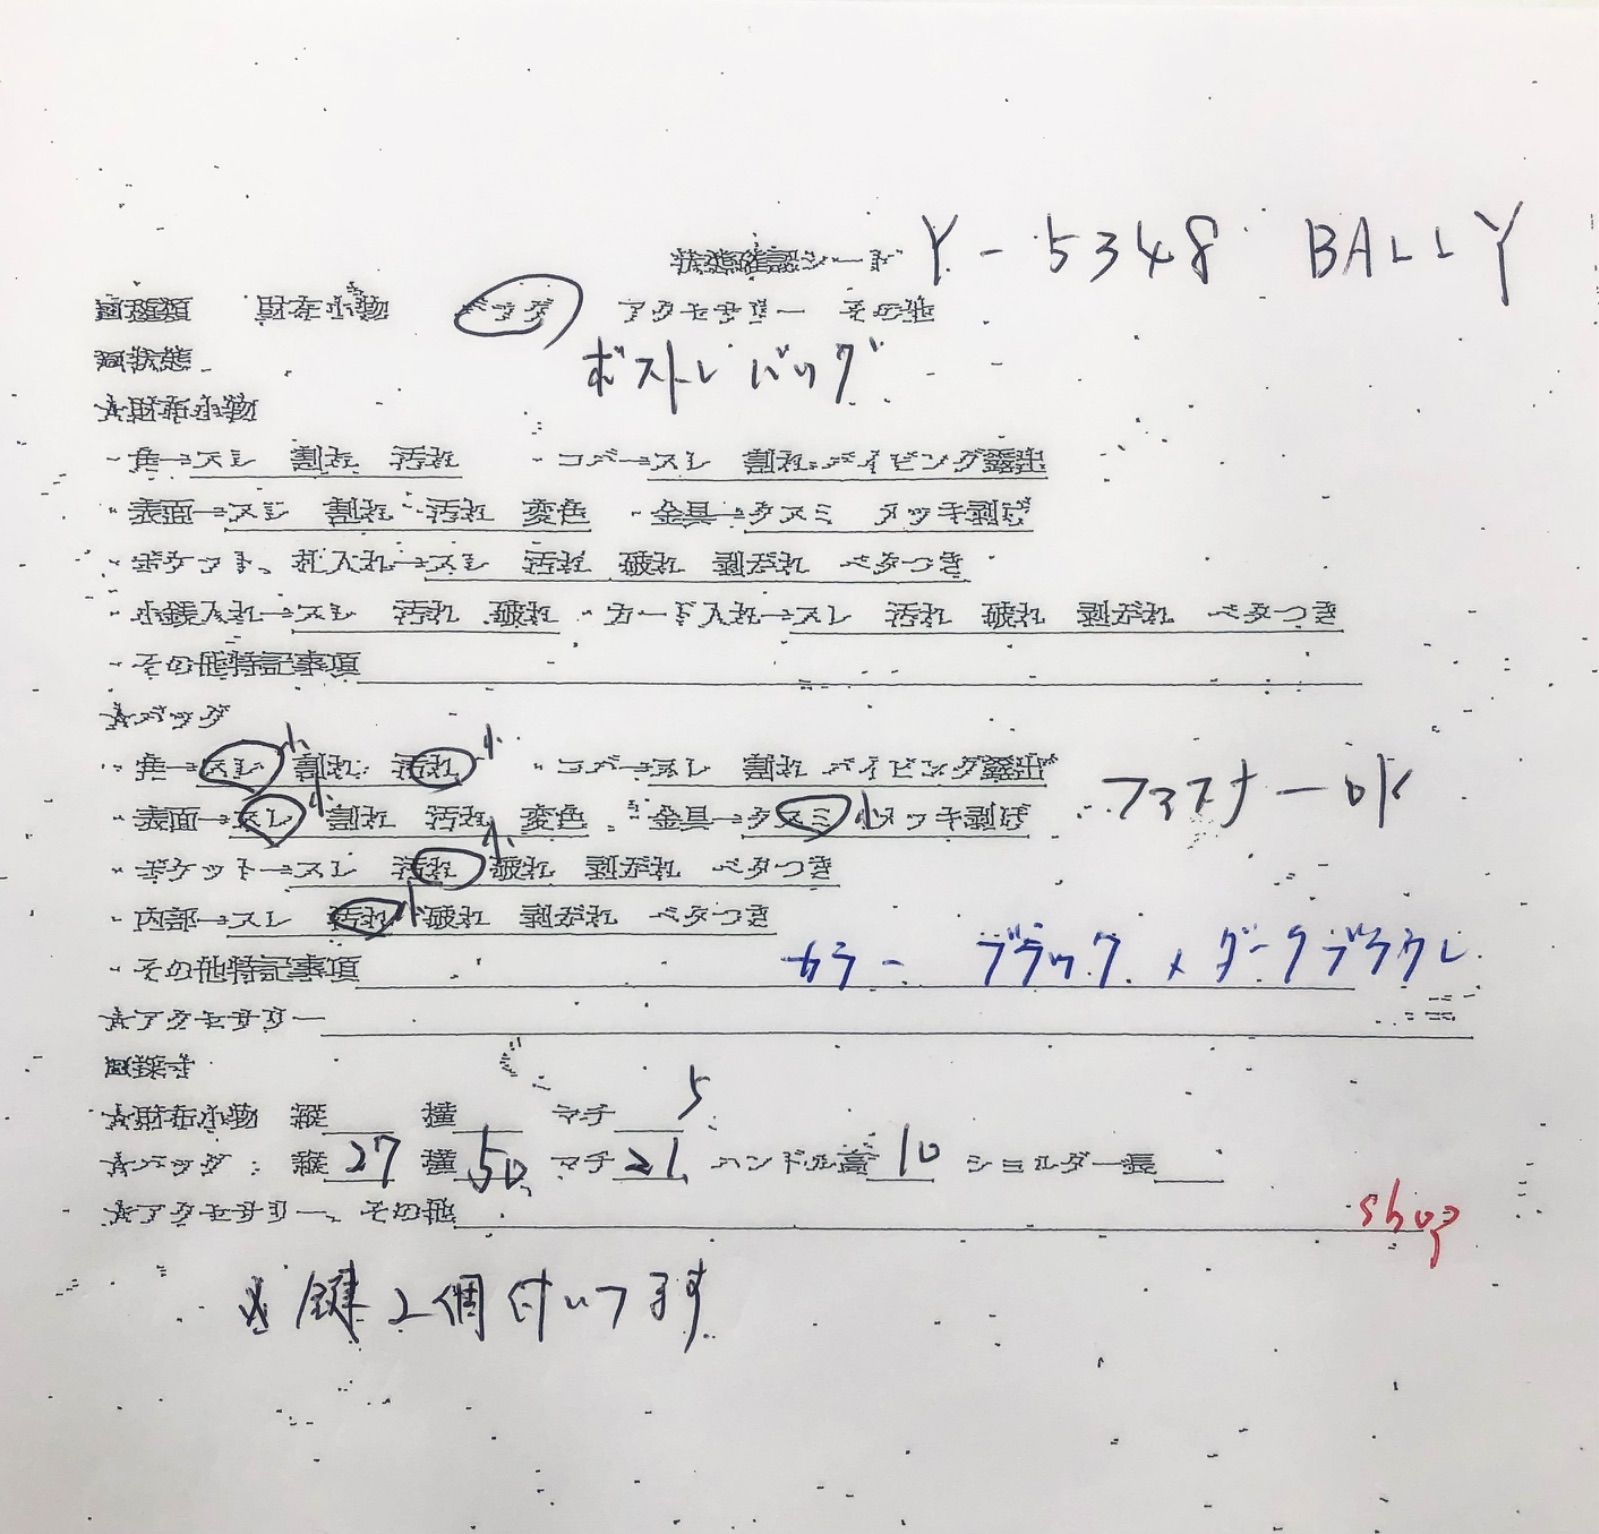 状態確認シート Y-5348 BALLY
□種類 財布小物 バッグ アクセサリー その他
□状態 ボストンバッグ
☆財布小物
・角→スレ 割れ 汚れ ・コバ→スレ 割れ パイピング露出
・表面→スレ 割れ 汚れ 変色 ・金具→クスミ メッキ剥げ
・ポケット、札入れ→スレ 汚れ 破れ 剥がれ ベタつき
・小銭入れ→スレ 汚れ 破れ ・カード入れ→スレ 汚れ 破れ 剥がれ ベタつき
・その他特記事項
☆バッグ
・角→スレ小 割れ 汚れ小 ・コバ→スレ 割れ パイピング露出
・表面→スレ小 割れ 汚れ 変色 ・金具→クスミ小 メッキ剥げ ファスナーOK
・ポケット→スレ 汚れ小 破れ 剥がれ ベタつき
・内部→スレ 汚れ小 破れ 剥がれ ベタつき
・その他特記事項 カラー ブラック×ダークブラウン
☆アクセサリー
□採寸
☆財布小物 縦 横 マチ 5
☆バッグ:縦 27 横 50 マチ 21 ハンドル高 10 ショルダー長
☆アクセサリー、その他 shop
※鍵2個付いてます